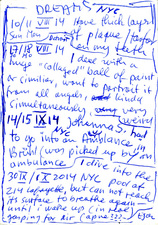 DREAMS NYC
10/11 VIII 14 Have thick layers
Sun Mon of plaque / tartar
17/18 VIII 14 on my teeth
I deal with a
huge "collaged" ball of paint
or similar, want to portrait it
from all angles
simultaneously very
14/15 IX 14 Johanna S. had
to go into an ambulance in
NYC
Brühl (was picked up by an
ambulance) I dive into the
30 IX / 1 X 2014 NYC pool of
214 Lafayette, but can not reach
its surface to breathe again
until I wake up (in place)
gasping for air (apnea???)